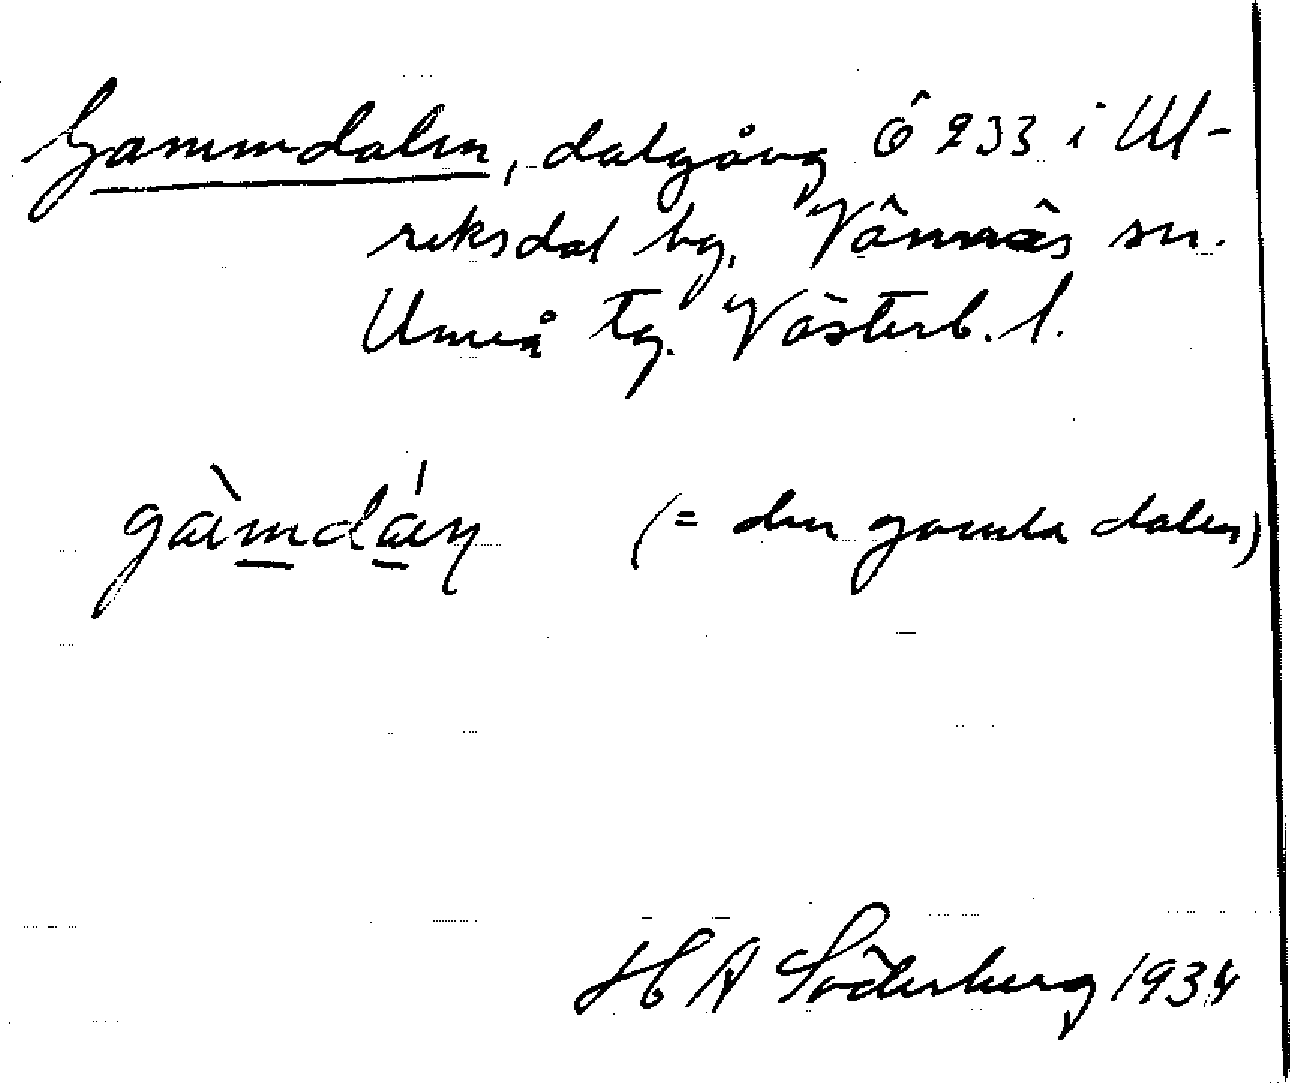 Gammdalen, dalgång Ö 233 i Ul-
riksdal bg, Vännäs sn.
Umeå tg. Västerb. l.
gàmdáɳ (= den gamla dalen)
H A Söderberg 1934